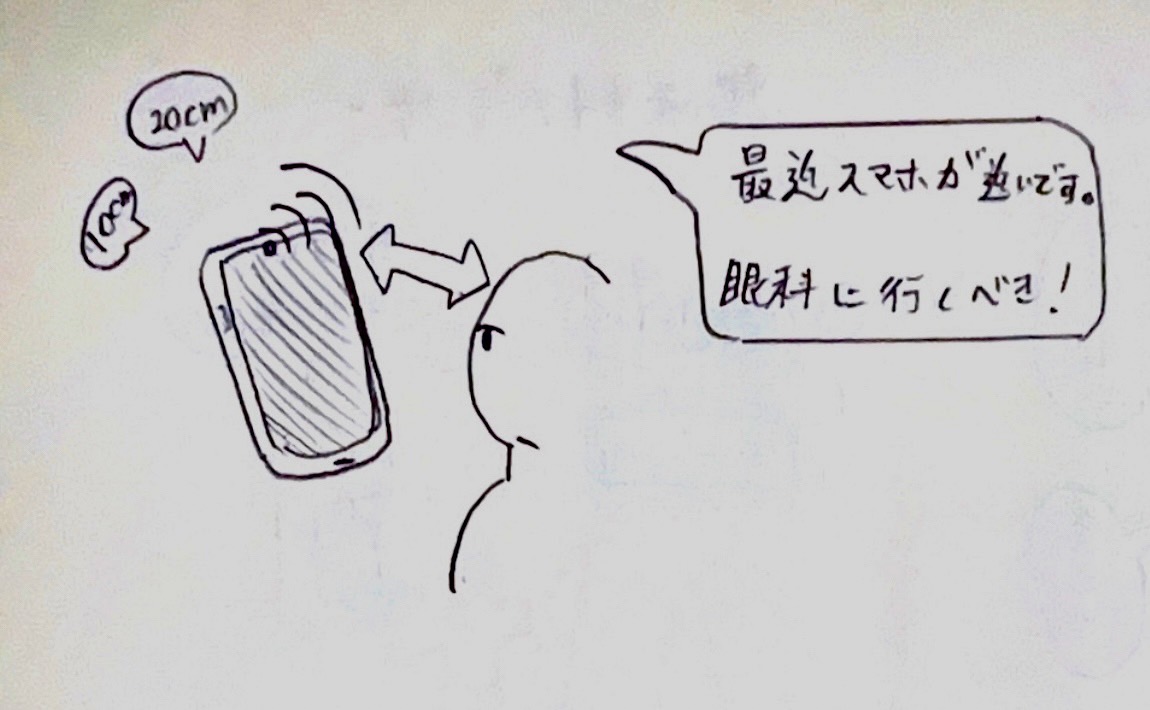 20cm
10cm
最近スマホが近いです。
眼科に行くべき!